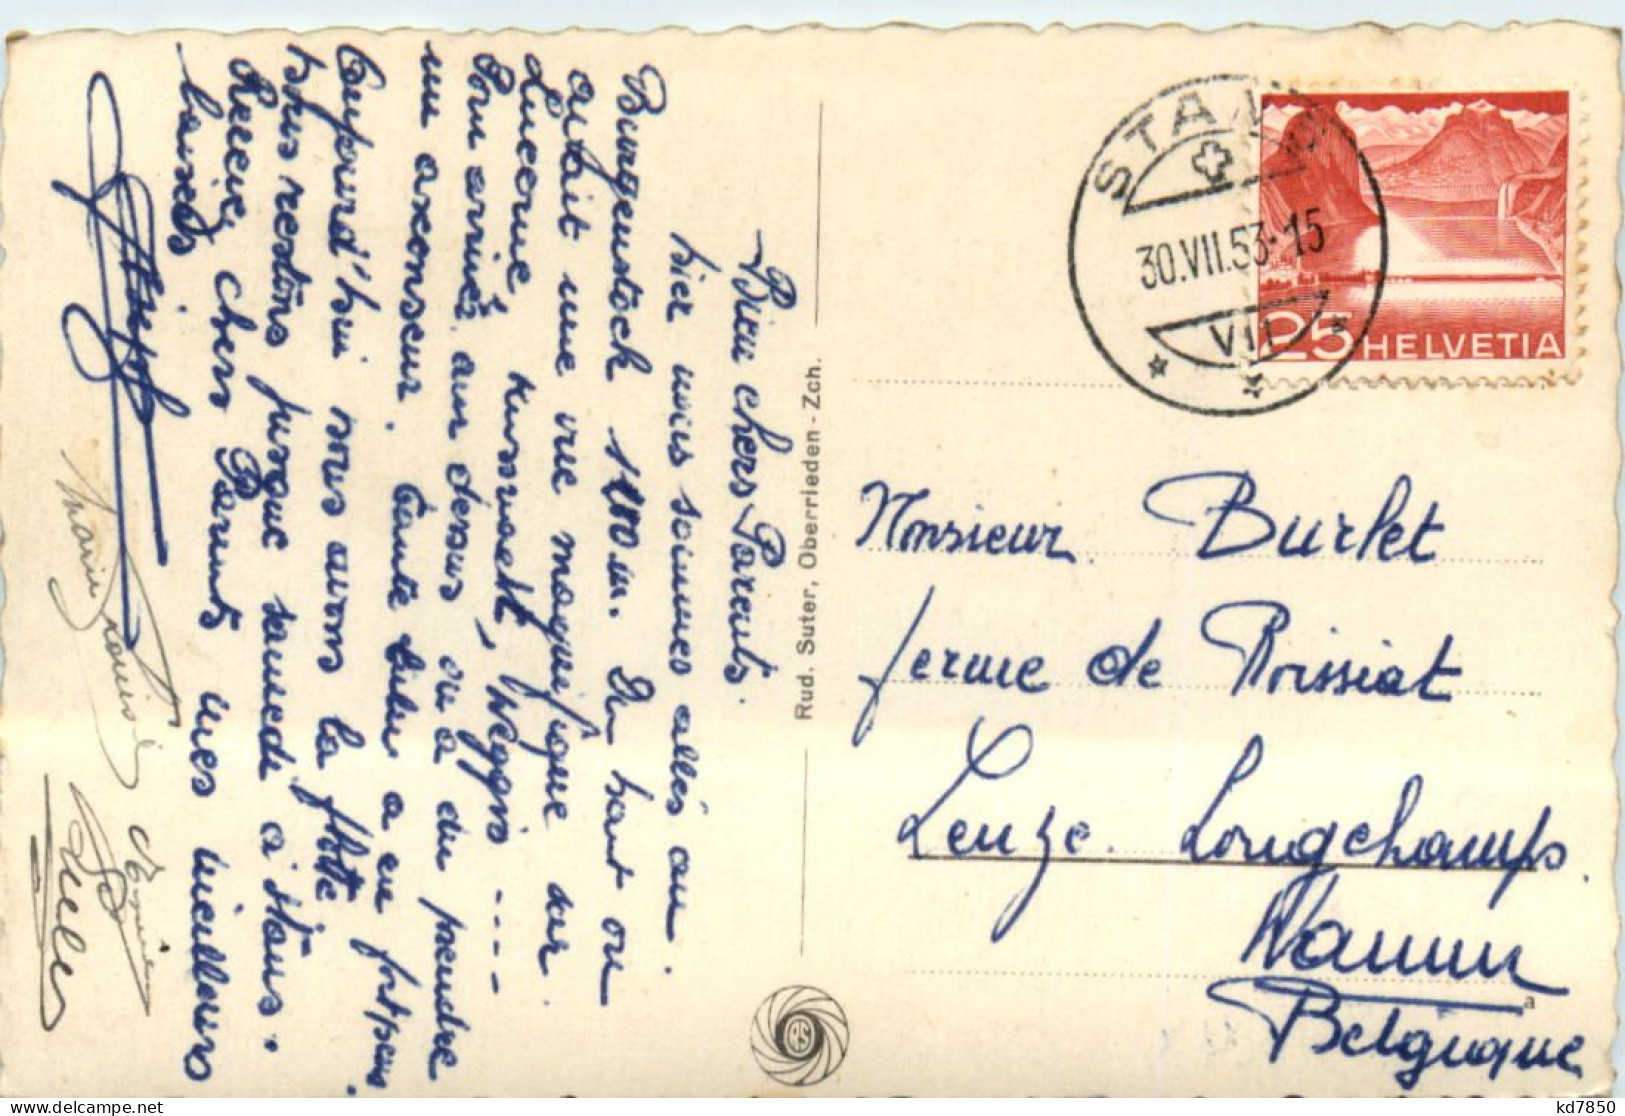 Bien chers Parents.
hier nous sommes allés au
Burgenstock 1100 m. Du haut on
avait une vue magnifique sur
Lucerne, Kusnacht, Weggis ----
Pour arriver au dessus on a du prendre
un axenseur. Tante Lulu a eu fort peur.
Aujourd'hui nous avons la flotte.
Nous restons jusque samedi à Stans.
Recevez, chers Parents mes meilleurs
baisers
Rud. Suter, Oberrieden - Zch.
STANS
30.VII.53-15
VII
25 HELVETIA
Monsieur Burlet
ferme de Boissiat
Leuze. Longchamps.
Namur
Belgique
RS
a
kd7850